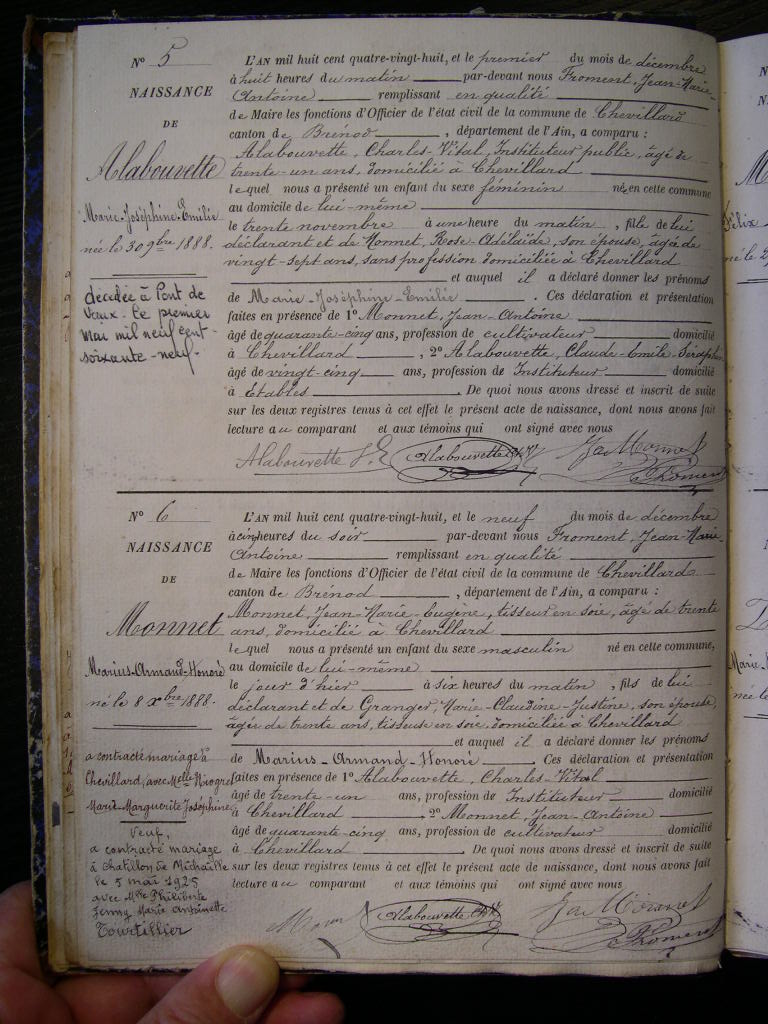 N° 5
NAISSANCE
DE
Alabouvette
Marie-Joséphine-Emilie
née le 30 9bre 1888.
décédée à Pont de
Vaux. Le premier
Mai mil neuf cent-
soixante-neuf.
L'AN mil huit cent quatre-vingt-huit, et le premier du mois de décembre
à huit heures du matin par-devant nous Froment, Jean-Marie-
Antoine remplissant en qualité
de Maire les fonctions d'Officier de l'état civil de la commune de Chevillard
canton de Brénod, département de l'Ain, a comparu :
Alabouvette, Charles-Vital, Instituteur public, âgé de
trente-un ans, domicilié à Chevillard
lequel nous a présenté un enfant du sexe féminin née en cette commune
au domicile de lui-même
le trente novembre à une heure du matin, fille de lui
déclarant et de Monnet, Rose-Adélaïde, son épouse, âgée de
vingt-sept ans, sans profession domiciliée à Chevillard
et auquel il a déclaré donner les prénoms
de Marie-Joséphine-Emilie. Ces déclaration et présentation
faites en présence de 1° Monnet, Jean-Antoine
âgé de quarante-cinq ans, profession de cultivateur domicilié
à Chevillard, 2° Alabouvette, Claude-Emile-Séraphin
âgé de vingt-cinq ans, profession de Instituteur domicilié
à Etables. De quoi nous avons dressé et inscrit de suite
sur les deux registres tenus à cet effet le présent acte de naissance, dont nous avons fait
lecture au comparant et aux témoins qui ont signé avec nous
Alabouvette Alabouvette Ch. Vl Jan Monnet
Froment
N° 6
NAISSANCE
DE
Monnet
Marius-Armand-Honoré
né le 8 Xbre 1888.
a contracté mariage à
Chevillard, avec Melle
Marie-Marguerite Joséphine
Veuf,
a contracté mariage
à Chatillon de Michaille
le 5 mai 1925
avec Mlle Philiberte
Jenny Marie Antoinette
Tourtillier
L'AN mil huit cent quatre-vingt-huit, et le neuf du mois de décembre
à cinq heures du soir par-devant nous Froment, Jean-Marie
Antoine remplissant en qualité
de Maire les fonctions d'Officier de l'état civil de la commune de Chevillard
canton de Brénod, département de l'Ain, a comparu :
Monnet, Jean-Marie-Eugène, tisseur en soie, âgé de trente
ans, domicilié à Chevillard
lequel nous a présenté un enfant du sexe masculin né en cette commune,
au domicile de lui-même
le jour d'hier à six heures du matin, fils de lui
déclarant et de Granger, Marie-Claudine-Justine, son épouse,
âgée de trente ans, tisseuse en soie domiciliée à Chevillard
et auquel il a déclaré donner les prénoms
de Marius-Armand-Honoré. Ces déclaration et présentation
faites en présence de 1° Alabouvette, Charles-Vital
âgé de trente-un ans, profession de Instituteur domicilié
à Chevillard, 2° Monnet, Jean-Antoine
âgé de quarante-cinq ans, profession de cultivateur domicilié
à Chevillard. De quoi nous avons dressé et inscrit de suite
sur les deux registres tenus à cet effet le présent acte de naissance, dont nous avons fait
lecture au comparant et aux témoins qui ont signé avec nous
Alabouvette Ch. Vl Jan Monnet
Froment